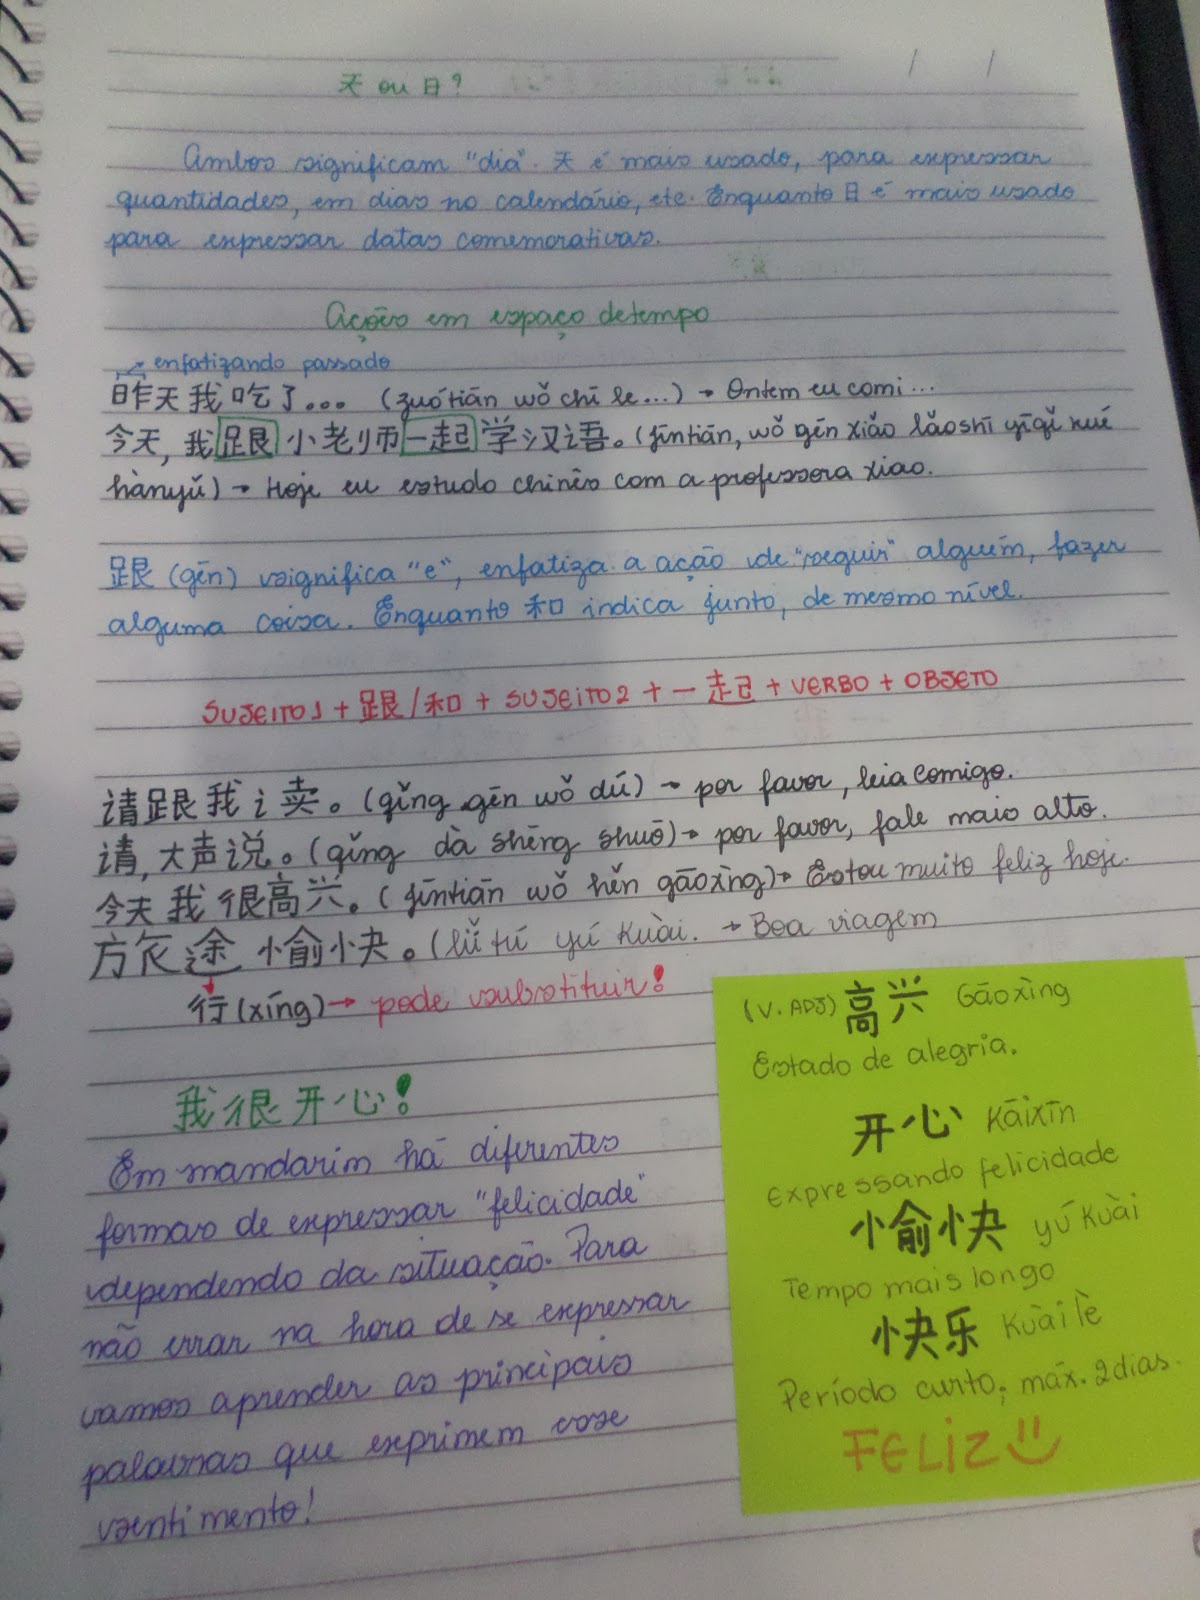 天 ou 日?
Ambos significam "dia". 天 é mais usado, para expressar
quantidades, em dias no calendário, etc. Enquanto 日 é mais usado
para expressar datas comemorativas.
Ações em espaço de tempo
enfatizando passado
昨天我吃了... (zuótiān wǒ chī le...) → Ontem eu comi...
今天, 我跟小老师一起学汉语。(jīntiān, wǒ gēn xiǎo lǎoshī yīqǐ xué
hànyǔ) → Hoje eu estudo chinês com a professora xiao.
跟 (gēn) significa "e", enfatiza a ação de "seguir" alguém, fazer
alguma coisa. Enquanto 和 indica junto, de mesmo nível.
SUJEITO1 + 跟/和 + SUJEITO2 + 一起 + VERBO + OBJETO
请跟我讠卖。(qǐng gēn wǒ dú) → por favor, leia comigo.
请, 大声说。(qǐng dà shēng shuō) → por favor, fale mais alto.
今天我很高兴。(jīntiān wǒ hěn gāoxìng) → Estou muito feliz hoje.
旅途愉快。(lǚ tú yú kuài. → Boa viagem
行 (xíng) → pode substituir!
我很开心!
Em mandarim há diferentes
formas de expressar "felicidade"
dependendo da situação. Para
não errar na hora de se expressar
vamos aprender as principais
palavras que exprimem esse
sentimento!
(V. ADJ) 高兴 Gāoxìng
Estado de alegria.
开心 Kāixīn
Expressando felicidade
愉快 yú Kuài
Tempo mais longo
快乐 Kuài lè
Período curto, máx. 2 dias.
FELIZ